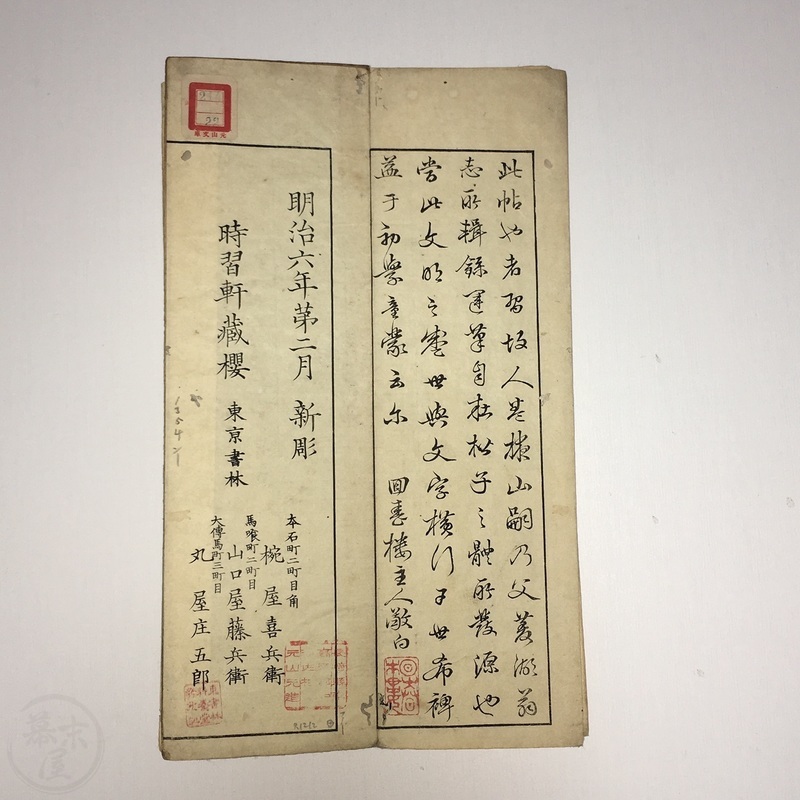 此帖也者習故人 山嗣乃父菱湖翁
志所輯錄運筆自在松子之體所發源也
當此文明之盛世與文字横行于世希裨
益于初學童蒙云尓 回春楼主人敬白
明治六年第二月 新彫
時習軒藏櫻 東京書林
本石町二町目角
椀屋喜兵衛
馬喰町二町目
山口屋藤兵衛
大傳馬町三町目
丸屋庄五郎
幕末屋